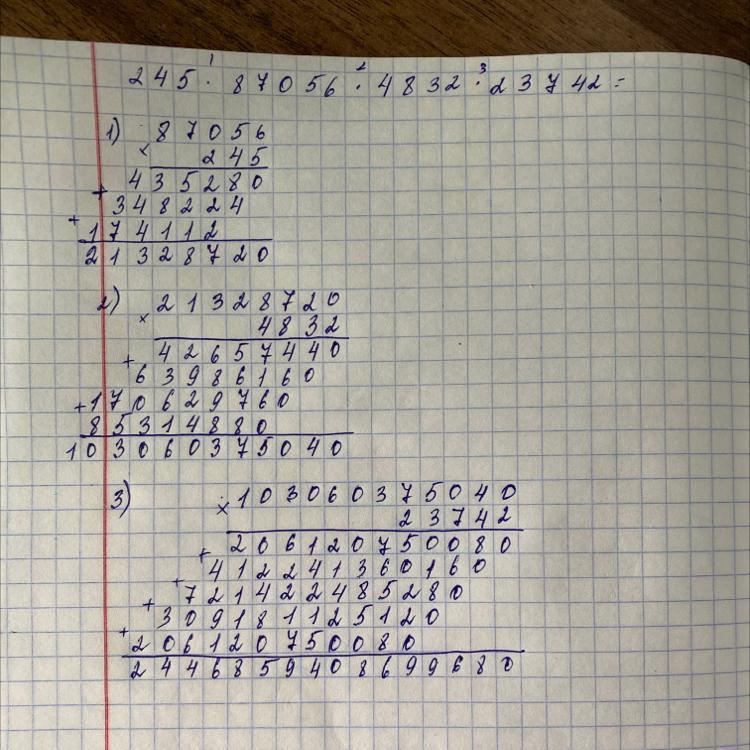 245 ·¹ 87056 ·² 4832 ·³ 23742 =
1) 87056
× 245
435280
+ 348224
+ 174112
21328720
2) 21328720
× 4832
42657440
+ 63986160
+ 170629760
85314880
103060375040
3) 103060375040
× 23742
206120750080
+ 412241360160
+ 721422485280
+ 309181125120
+ 206120750080
2446859408699680